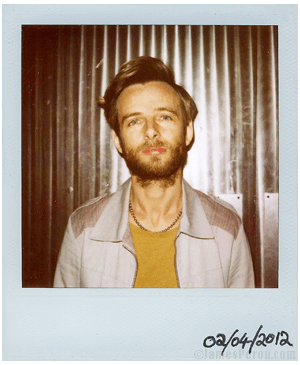 02/04/2012
©JamesPeron.com